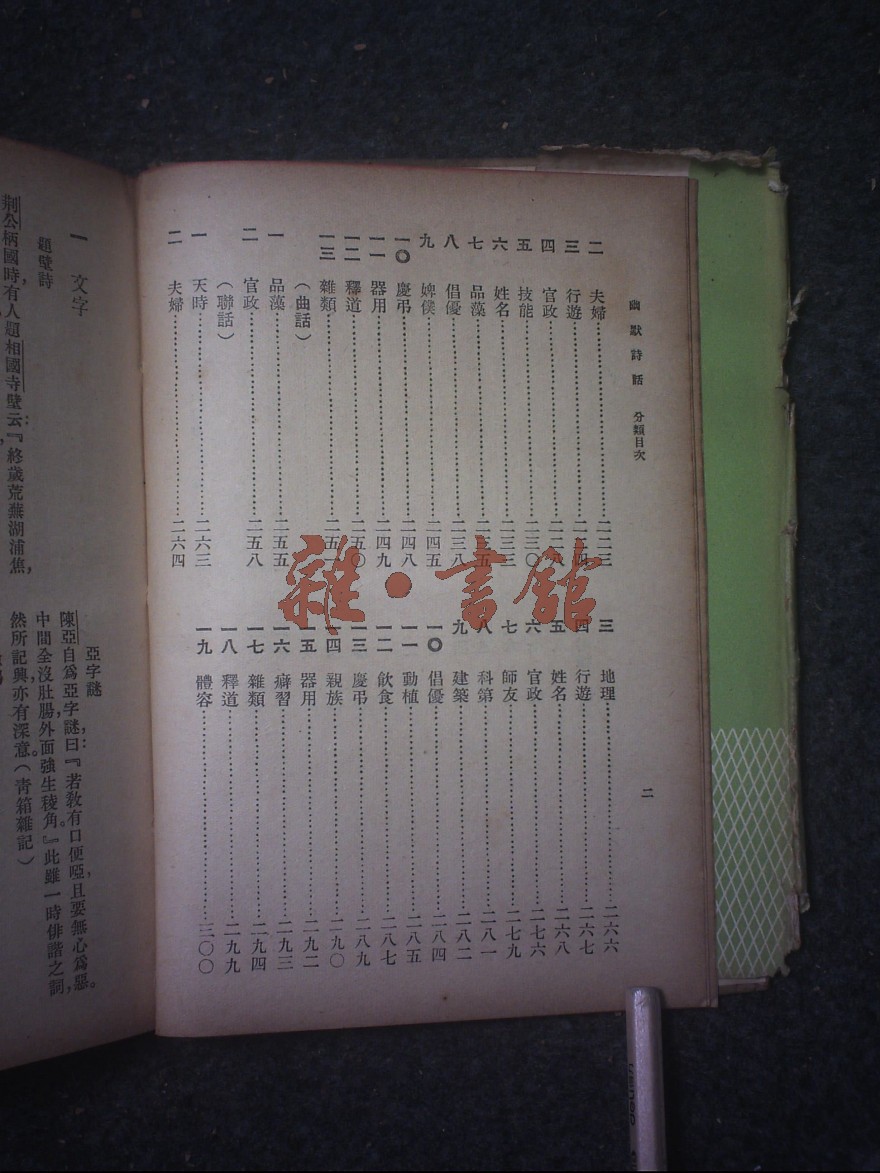 幽默詩話 分類目次
二 夫婦……二二三
三 行遊……二二四
四 官政……二二八
五 技能……二三〇
六 姓名……二三三
七 品藻……二三五
八 倡優……二三八
九 婢僕……二四五
一〇 慶弔……二四八
一一 器用……二四九
一二 釋道……二五〇
一三 雜類……二五一
（曲話）
一 品藻……二五五
二 官政……二五八
（聯話）
一 天時……二六三
二 夫婦……二六四
三 地理……二六六
四 行遊……二六七
五 姓名……二六八
六 官政……二七六
七 師友……二七九
八 科第……二八一
九 建築……二八二
一〇 倡優……二八四
一一 動植……二八五
一二 飲食……二八七
一三 慶弔……二八九
一四 親族……二九〇
一五 器用……二九二
一六 癖習……二九三
一七 雜類……二九四
一八 釋道……二九九
一九 體容……三〇〇
二
雜·書館
一 文字
題壁詩
荆公柄國時，有人題相國寺壁云：『終歲荒蕪湖浦焦，
亞字謎
陳亞自爲亞字謎曰：『若教有口便啞，且要無心爲惡。
中間全沒肚腸，外面強生稜角。』此雖一時俳諧之詞，
然所記興亦有深意。（青箱雜記）